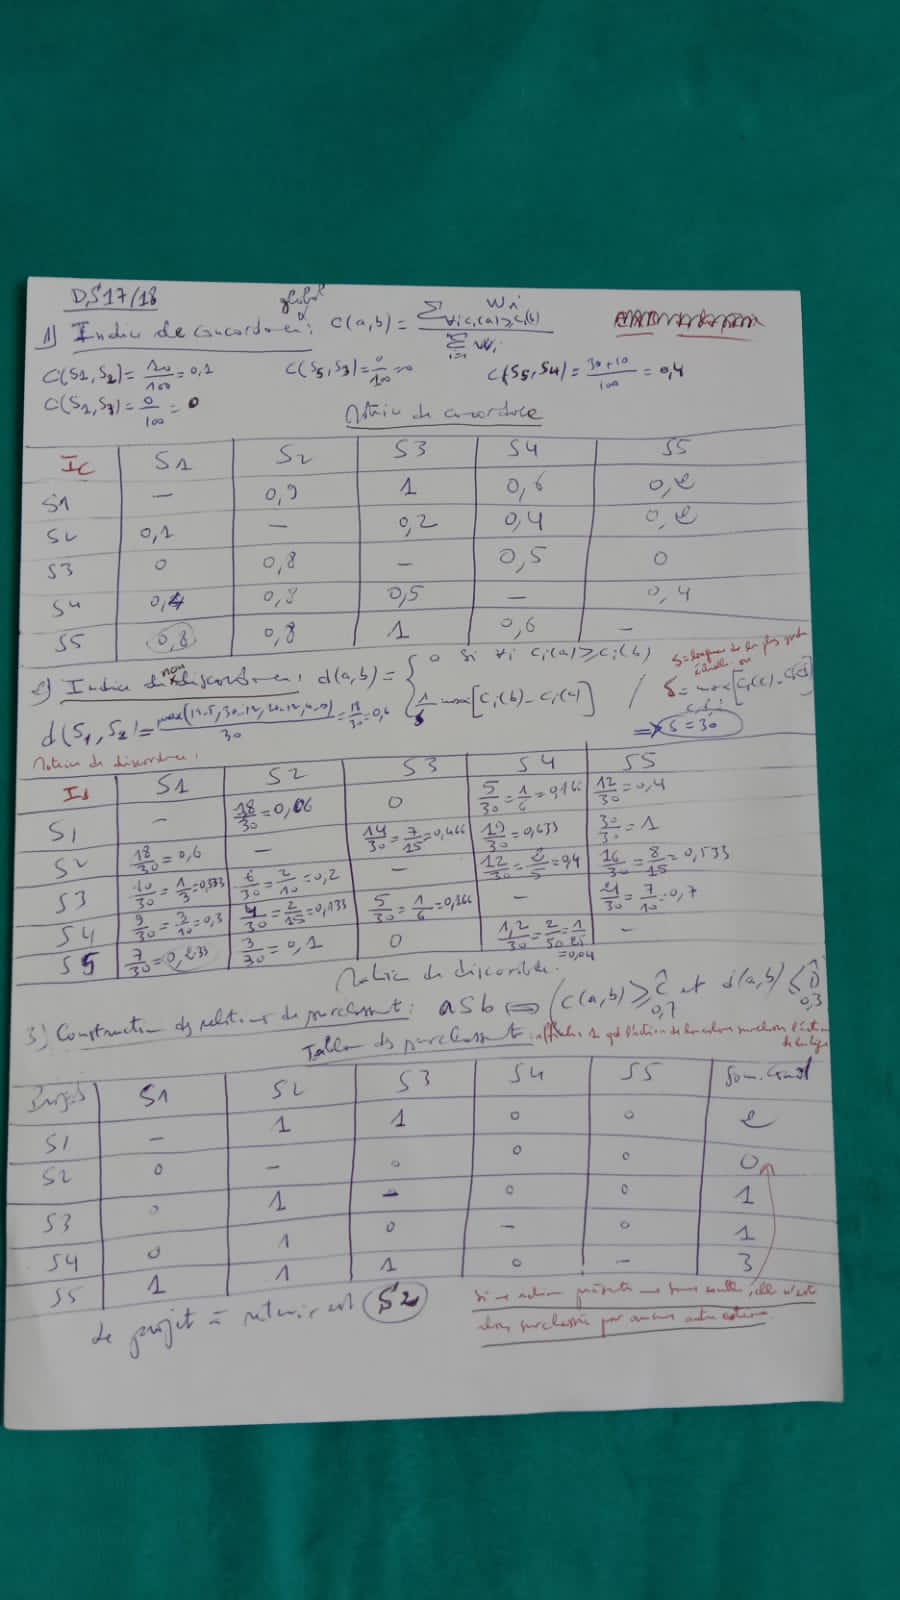 DS17/18
global
1) Indice de concordance: C(a,b) = Σ∀i Ci(a)≥Ci(b) Wi / Σ i=1 Wi
C(S1,S2) = 10/100 = 0,1
C(S5,S3) = 0/100 = 0
C(S5,S4) = 30+10/100 = 0,4
C(S1,S3) = 0/100 = 0
Matrice de concordance
Ic S1 S2 S3 S4 S5
S1 — 0,9 1 0,6 0,2
S2 0,1 — 0,2 0,4 0,2
S3 0 0,8 — 0,5 0
S4 0,4 0,8 0,5 — 0,4
S5 0,8 0,8 1 0,6 —
2) Indice de non discordance: d(a,b) = { 0 si ∀i Ci(a)≥Ci(b)
1/δ max[Ci(b)-Ci(a)]
δ = longueur de la plus grande échelle ou
δ = max
=> δ = 30
d(S1,S2) = = 18/30 = 0,6
Matrice de discordance:
Id S1 S2 S3 S4 S5
S1 — 18/30 = 0,06 0 5/30 = 1/6 = 0,166 12/30 = 0,4
S2 18/30 = 0,6 — 14/30 = 7/15 = 0,466 19/30 = 0,633 30/30 = 1
S3 10/30 = 1/3 = 0,333 6/30 = 2/10 = 0,2 — 12/30 = 2/5 = 0,4 16/30 = 8/15 = 0,533
S4 9/30 = 3/10 = 0,3 4/30 = 2/15 = 0,133 5/30 = 1/6 = 0,166 — 21/30 = 7/10 = 0,7
S5 7/30 = 0,233 3/30 = 0,1 0 1,2/30 = 2/50 = 1/25 = 0,04 —
Matrice de discordance.
3) Construction des relations de surclassement: aSb ⟺ (C(a,b) ≥ Ĉ et d(a,b) ≤ D̂
0,7 0,3
Tableau des surclassement:
Projets S1 S2 S3 S4 S5
S1 — 1 1 0 0 2
S2 0 — 0 0 0 0
S3 0 1 — 0 0 1
S4 0 1 0 — 0 1
S5 1 1 1 0 — 3
Le projet à retenir est S2
si une action présente une somme nulle, elle n'est
alors surclassée par aucune autre action.